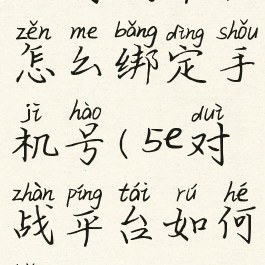 zěn me bǎng dìng shǒu
怎么绑定手
jī hào duì
机号(5e对
zhàn píng tái rú hé
战平台如何